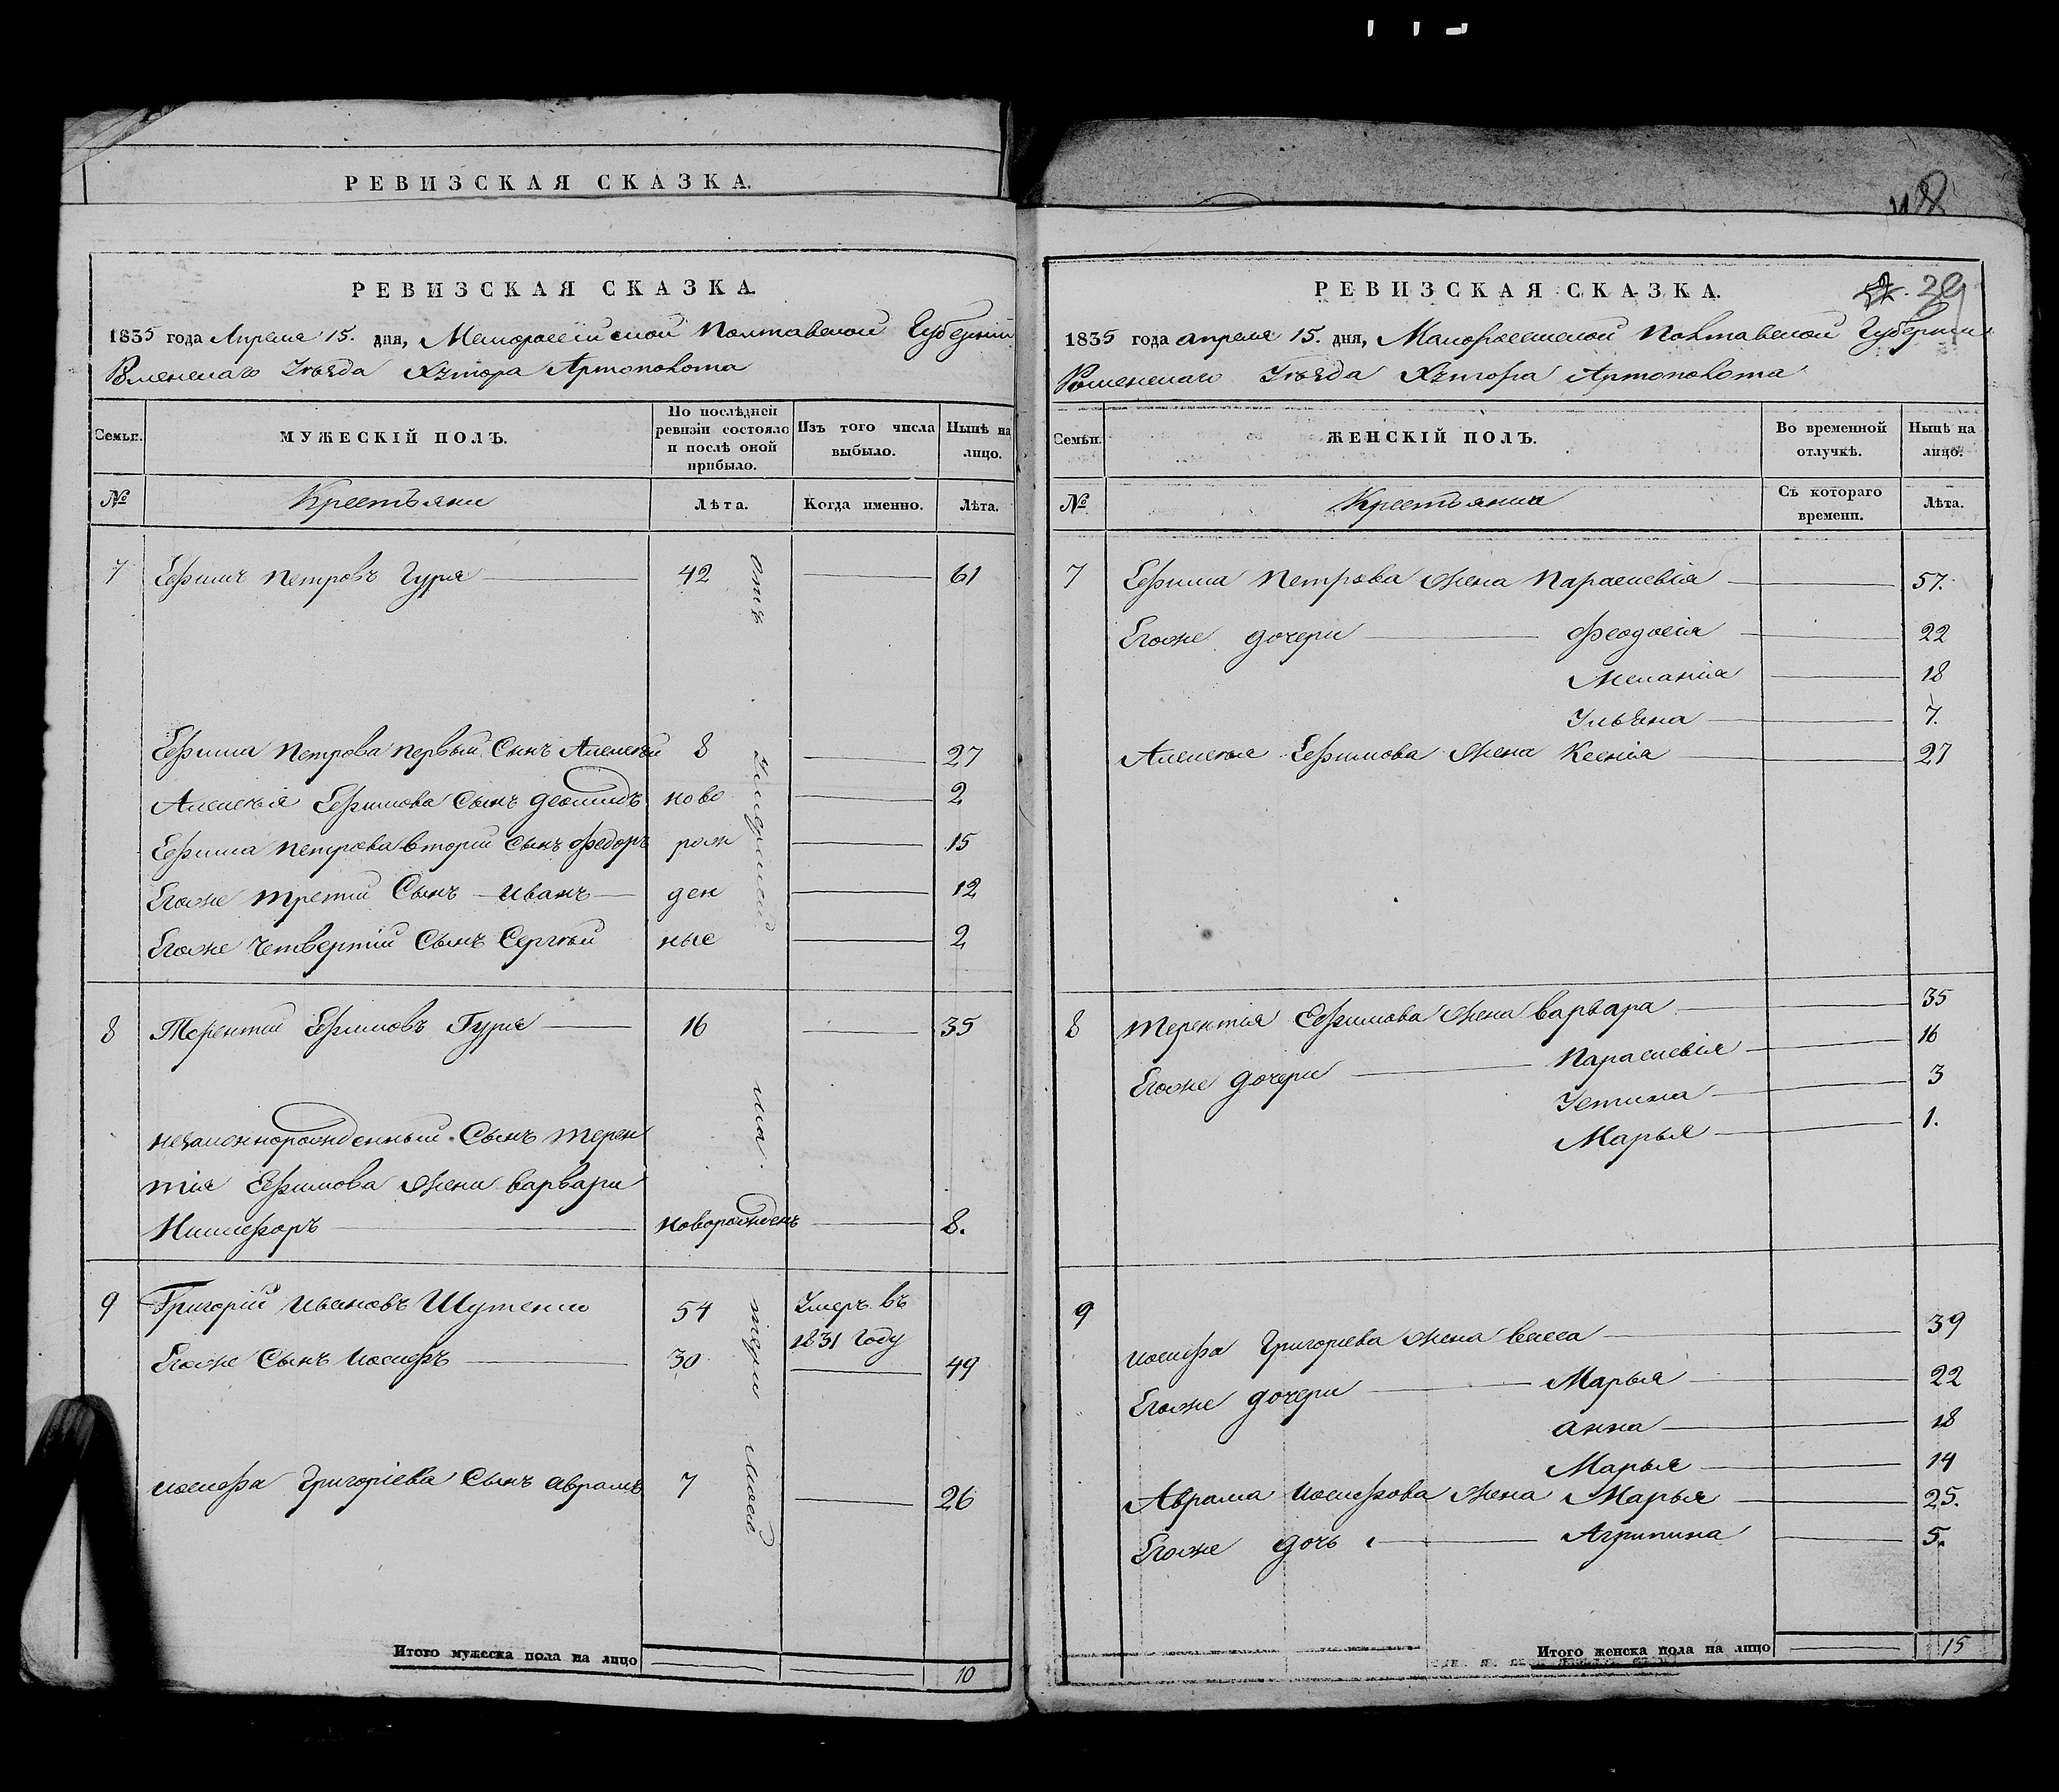 РЕВИЗСКАЯ СКАЗКА.
РЕВИЗСКАЯ СКАЗКА.
1835 года Апреля 15. дня, Малороссійской Полтавской Губерніи
Роменскаго Уѣзда Хутора Артополота
Семьи. МУЖЕСКІЙ ПОЛЪ. По послѣдней ревизіи состояло и послѣ оной прибыло. Изъ того числа выбыло. Нынѣ на лицо.
№ Крестьяни Лѣта. Когда именно. Лѣта.
7 Ефимъ Петровъ Гуря 42 61
Ефима Петрова первый Сынъ Алексѣй 8 27
Алексѣя Ефимова Сынъ Леонидъ ново 2
Ефима Петрова вторій Сынъ Федоръ рож 15
Егоже третій Сынъ Иванъ ден 12
Егоже четвертій Сынъ Сергѣй ные 2
8 Терентій Ефимовъ Гуря 16 35
незаконнорожденный Сынъ Терен
тія Ефимова жени Варвари
Никифоръ новорожденъ 8.
9 Григорій Ивановъ Шутенко 54 Умеръ въ
1831 Году
Егоже Сынъ Иосифъ 30 49
Иосифа Григоріева Сынъ Аврамъ 7 26
Итого мужеска пола на лицо 10
39
РЕВИЗСКАЯ СКАЗКА.
1835 года апреля 15. дня, Малороссійской Полтавской Губерніи
Роменскаго Уѣзда Хутора Артополота
Семьи. ЖЕНСКІЙ ПОЛЪ. Во временной отлучкѣ. Нынѣ на лицо.
№ Крестьянки Съ котораго времени. Лѣта.
7 Ефима Петрова Жена Параскевія 57.
Егоже дочери Феодосія 22
Меланія 18
Ульяна 7.
Алексѣя Ефимова Жена Ксенія 27
8 Терентія Ефимова Жена Варвара 35
Егоже дочери Параскевія 16
Устина 3
Марья 1.
9
Иосифа Григоріева Жена Васса 39
Егоже дочери Марья 22
Анна 18
Марья 14
Аврама Иосифова Жена Марья 25.
Егоже дочь Агрипина 5.
Итого женска пола на лицо 15